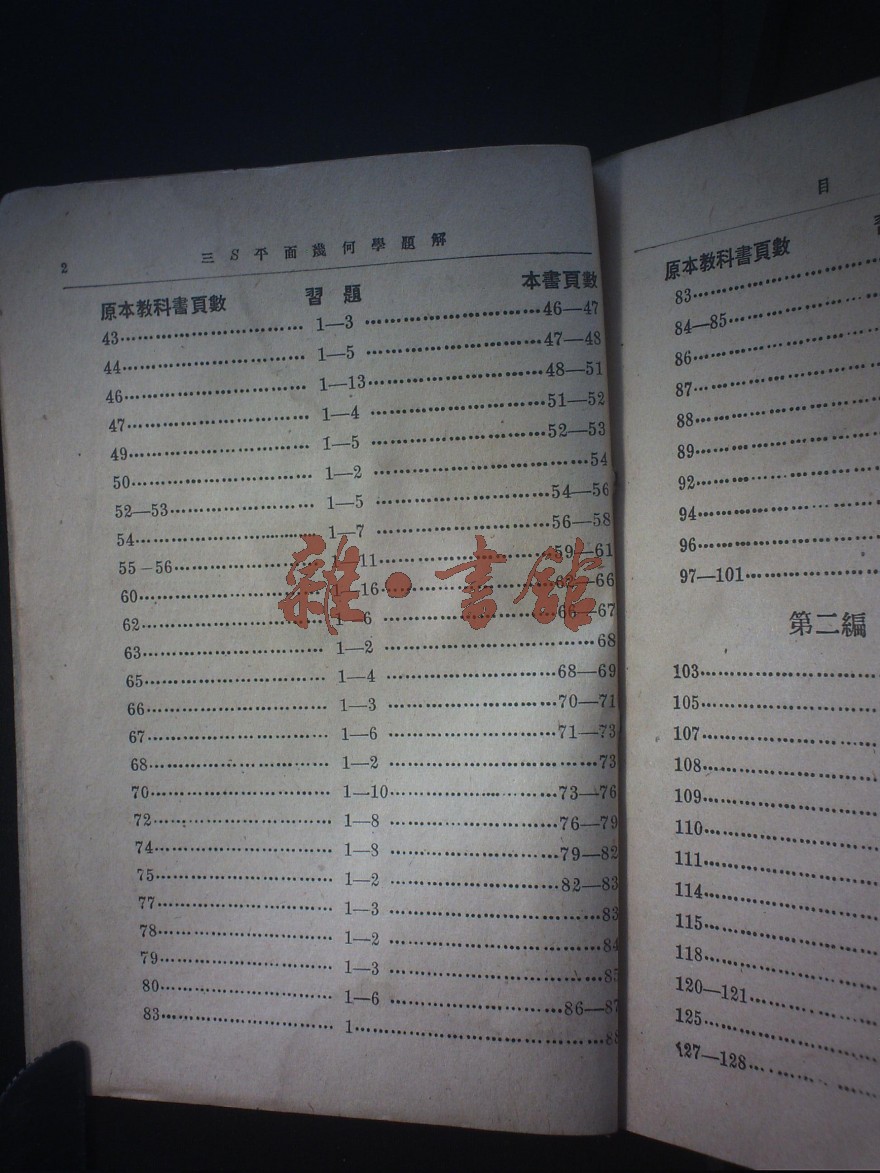 2
三 S 平 面 幾 何 學 題 解
原本教科書頁數 習 題 本書頁數
43 1—3 46—47
44 1—5 47—48
46 1—13 48—51
47 1—4 51—52
49 1—5 52—53
50 1—2 54
52—53 1—5 54—56
54 1—7 56—58
55—56 1—11 59—61
60 1—16 62—66
62 1—6 66—67
63 1—2 68
65 1—4 68—69
66 1—3 70—71
67 1—6 71—73
68 1—2 73
70 1—10 73—76
72 1—8 76—79
74 1—8 79—82
75 1—2 82—83
77 1—3 83
78 1—2 84
79 1—3 85
80 1—6 86—87
83 1 88
雜·書館
目
原本教科書頁數
83
84—85
86
87
88
89
92
94
96
97—101
第二編
103
105
107
108
109
110
111
114
115
118
120—121
125
127—128